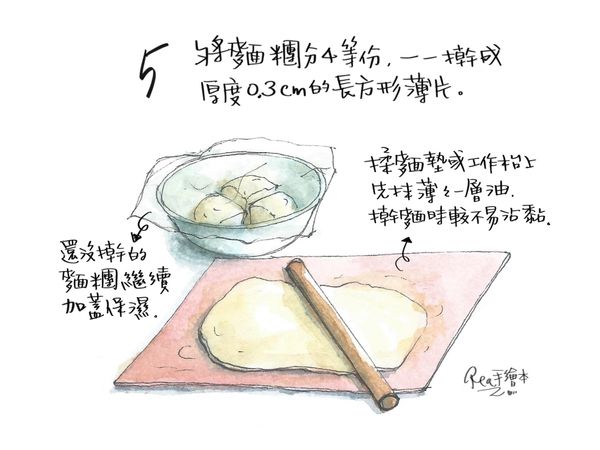 5 將麵糰分4等份,一一擀成
厚度0.3cm的長方形薄片。
揉麵墊或工作枱上
先抹薄薄一層油.
擀麵時較不易沾黏.
還沒擀的
麵糰繼續
加蓋保濕.
Rea手繪本